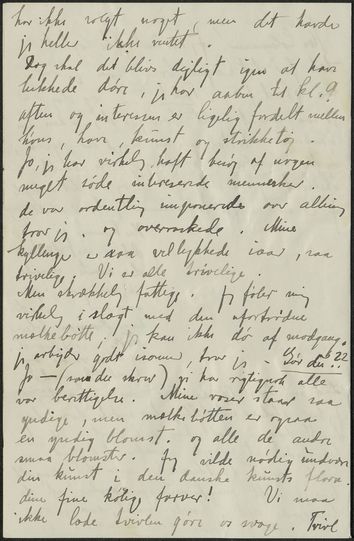 har ikke solgt noget, men det havde
jeg heller ikke ventet.
Dog skal det blive dejligt igen at have
lukkede døre, jeg har aaben til kl. 9
aften og interessen er ligelig fordelt mellem
høns, have, kunst og strikketøj.
Jo, jeg har virkelig haft besøg af nogen
meget søde interesserede mennesker.
de var ordentlig imponerede over alting
tror jeg. og overraskede. Mine
kyllinger er saa vellykkede iaar, saa
trivelige. Vi er alle trivelige.
Men skrækkelig fattige. Jeg føler mig
virkelig i slægt med den ufortrødne
mælkebøtte, jeg kan ikke dø af modgang.
jeg arbejder godt isommer, tror jeg – Gør du??
Jo – (som du skrev) jeg har rigtignok alle
vor berettigelse. Mine roser staar saa
yndige, men mælkebøtten er ogsaa
en yndig blomst. og alle de andre
smaa blomster. Jeg vilde nødig undvære
din kunst i den danske kunsts flora.
dine fine kølige farver! Vi maa
ikke lade tvivlen gøre os svage. Tvivl